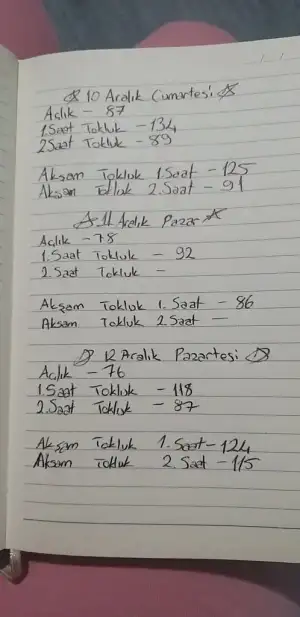 10 Aralık Cumartesi
Açlık - 87
1.Saat Tokluk - 134
2Saat Tokluk - 89
Akşam Tokluk 1.Saat - 125
Akşam Tokluk 2.Saat - 91
11 Aralık Pazar
Açlık - 78
1.Saat Tokluk - 92
2.Saat Tokluk -
Akşam Tokluk 1. Saat - 86
Akşam Tokluk 2.Saat -
12 Aralık Pazartesi
Açlık - 76
1.Saat Tokluk - 118
2.Saat Tokluk - 87
Akşam Tokluk 1.Saat - 124
Akşam Tokluk 2.Saat - 115